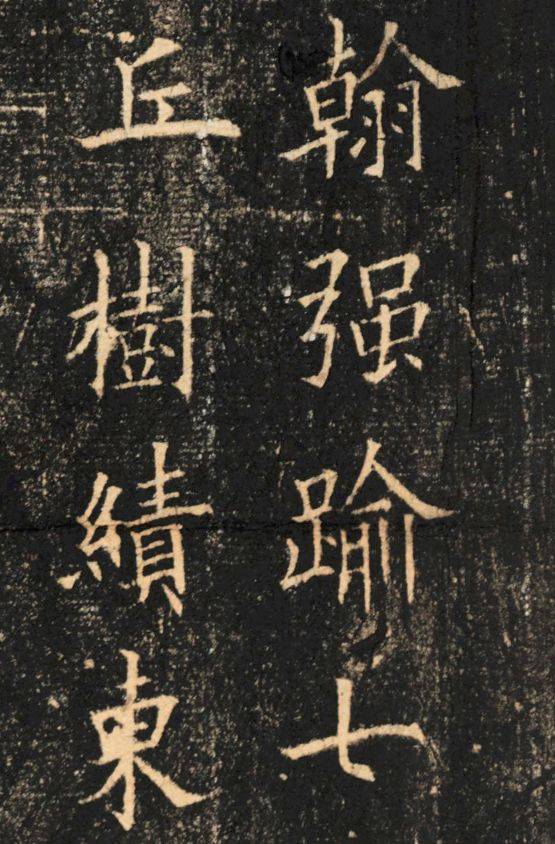 翰强踰七
丘樹績東